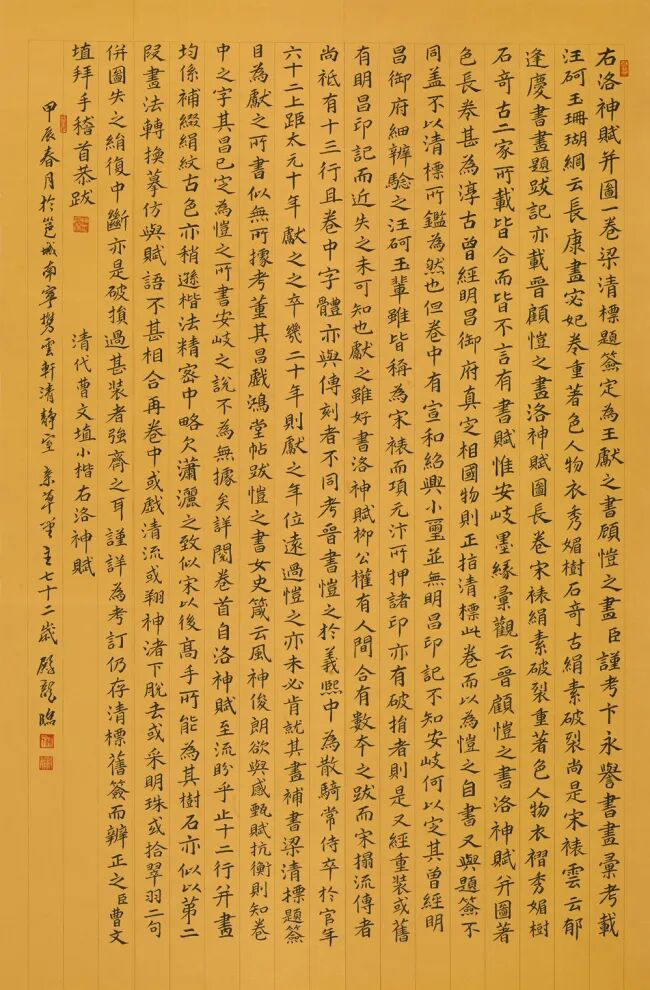 右洛神賦并圖一卷梁清標題簽定為王獻之書顧愷之畫臣謹考卞永譽書畫彙考載
汪砢玉珊瑚網云長康畫宓妃卷重著色人物衣秀媚樹石奇古絹素破裂尚是宋裱雲云郁
逢慶書畫題跋記亦載晉顧愷之畫洛神賦圖長卷宋裱絹素破裂重著色人物衣褶秀媚樹
石奇古二家所載皆合而皆不言有書賦惟安岐墨緣彙觀云晉顧愷之書洛神賦并圖著
色長卷甚為淳古曾經明昌御府真定相國物則正指清標此卷而以為愷之自書又與題簽不
同盖不以清標所鑑為然也但卷中有宣和紹興小璽並無明昌印記不知安岐何以定其曾經明
昌御府細辨驗之汪砢玉輩雖皆稱為宋裱而項元汴所押諸印亦有破損者則是又經重裝或舊
有明昌印記而近失之未可知也獻之雖好書洛神賦柳公權有人間合有數本之跋而宋搨流傳者
尚祇有十三行且卷中字體亦與傳刻者不同考晉書愷之於義熙中為散騎常侍卒於官年
六十二上距太元十年獻之之卒幾二十年則獻之年位遠過愷之亦未必肯就其畫補書梁清標題簽
目為獻之所書似無所據考董其昌戲鴻堂帖跋愷之書女史箴云風神俊朗欲與感甄賦抗衡則知卷
中之字其昌已定為愷之所書安岐之說不為無據矣詳閱卷首自洛神賦至流盼乎止十二行并畫
均係補綴絹紋古色亦稍遜楷法精密中略欠瀟灑之致似宋以後高手所能為其樹石亦似以第二
段畫法轉換摹仿與賦語不甚相合再卷中或戲清流或翔神渚下脫去或采明珠或拾翠羽二句
併圖失之絹復中斷亦是破損過甚裝者強齊之耳謹詳為考訂仍存清標舊簽而辨正之臣曹文
埴拜手稽首恭跋 清代曹文埴小楷右洛神賦
甲辰春月於邕城南寧攬雲軒清靜室 主七十二歲 龍臨